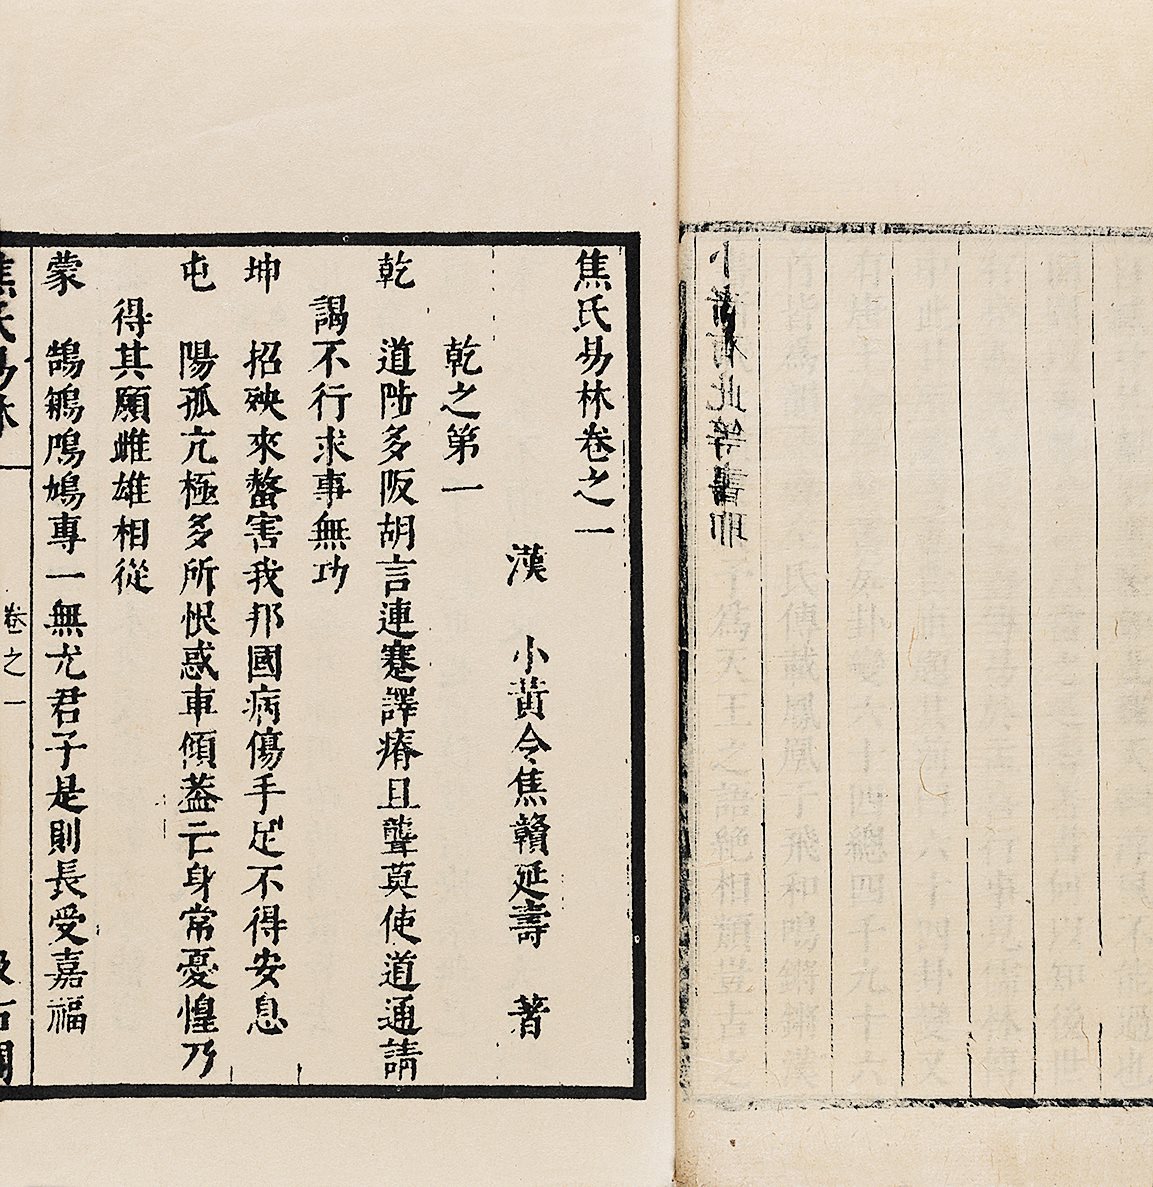 小黃有此等書耶
焦氏易林卷之一
漢 小黃令焦贛延壽 著
乾之第一
乾 道陟多阪胡言連蹇譯瘠且聾莫使道通請
謁不行求事無功
坤 招殃來螫害我邦國病傷手足不得安息
屯 陽孤亢極多所恨惑車傾蓋亡身常憂惶乃
得其願雌雄相從
蒙 鵠鵴鳲鳩專一無尤君子是則長受嘉福
焦氏易林 卷之一 汲古閣